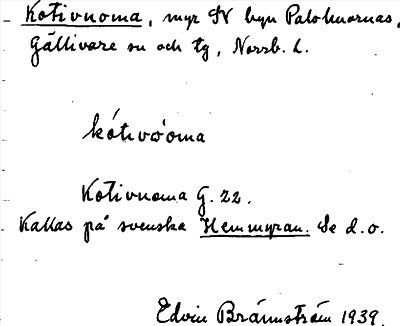 Kotivuoma, myr SV byn Palohuornas,
Gällivare sn och tg, Norrb. l.
kótivŏoma
Kotivuoma G. 22.
Kallas på svenska Hemmyran. Se d. o.
Edvin Brännström 1939.